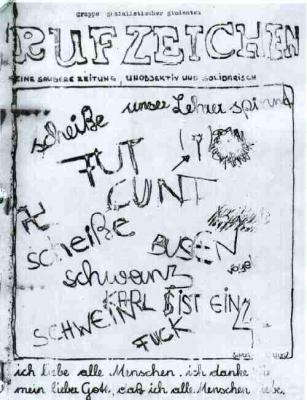 Gruppe sozialistischer Studenten
RUFZEICHEN
EINE SAUBERE ZEITUNG, UNOBJEKTIV UND SOLIDARISCH
scheiße unser Lehrer spinnt
FUT
CUNT
scheiße
BUSEN
schwanz
KARL IST EIN
SCHWEIN
FUCK
ich liebe alle Menschen. ich danke
mein lieber Gott, daß ich alle Menschen liebe.